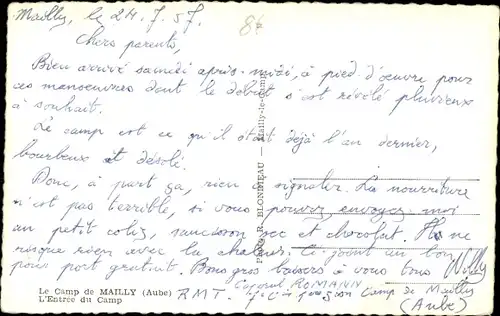 Mailly, le 24.7.57.
8€
Chers parents,
Bien arrivé samedi après-midi, à pied d'oeuvre pour
ces manoeuvres dont le début s'est révélé pluvieux
à souhait.
Le camp est ce qu'il était déjà l'an dernier,
bourbeux et désolé.
Donc, à part ça, rien à signaler. La nourriture
n'est pas terrible, si vous pouvez envoyez-moi
un petit colis, saucisson sec et chocolat. Ils ne
risque rien avec la chaleur. Ci-joint un bon
pour port gratuit. Bons gros baisers à vous tous Willy
PHOTO R. BLONDIEAU — Mailly-le-Camp
Le Camp de MAILLY (Aube)
L'Entrée du Camp
Caporal ROMANN
R.M.T. Camp de Mailly
(Aube)